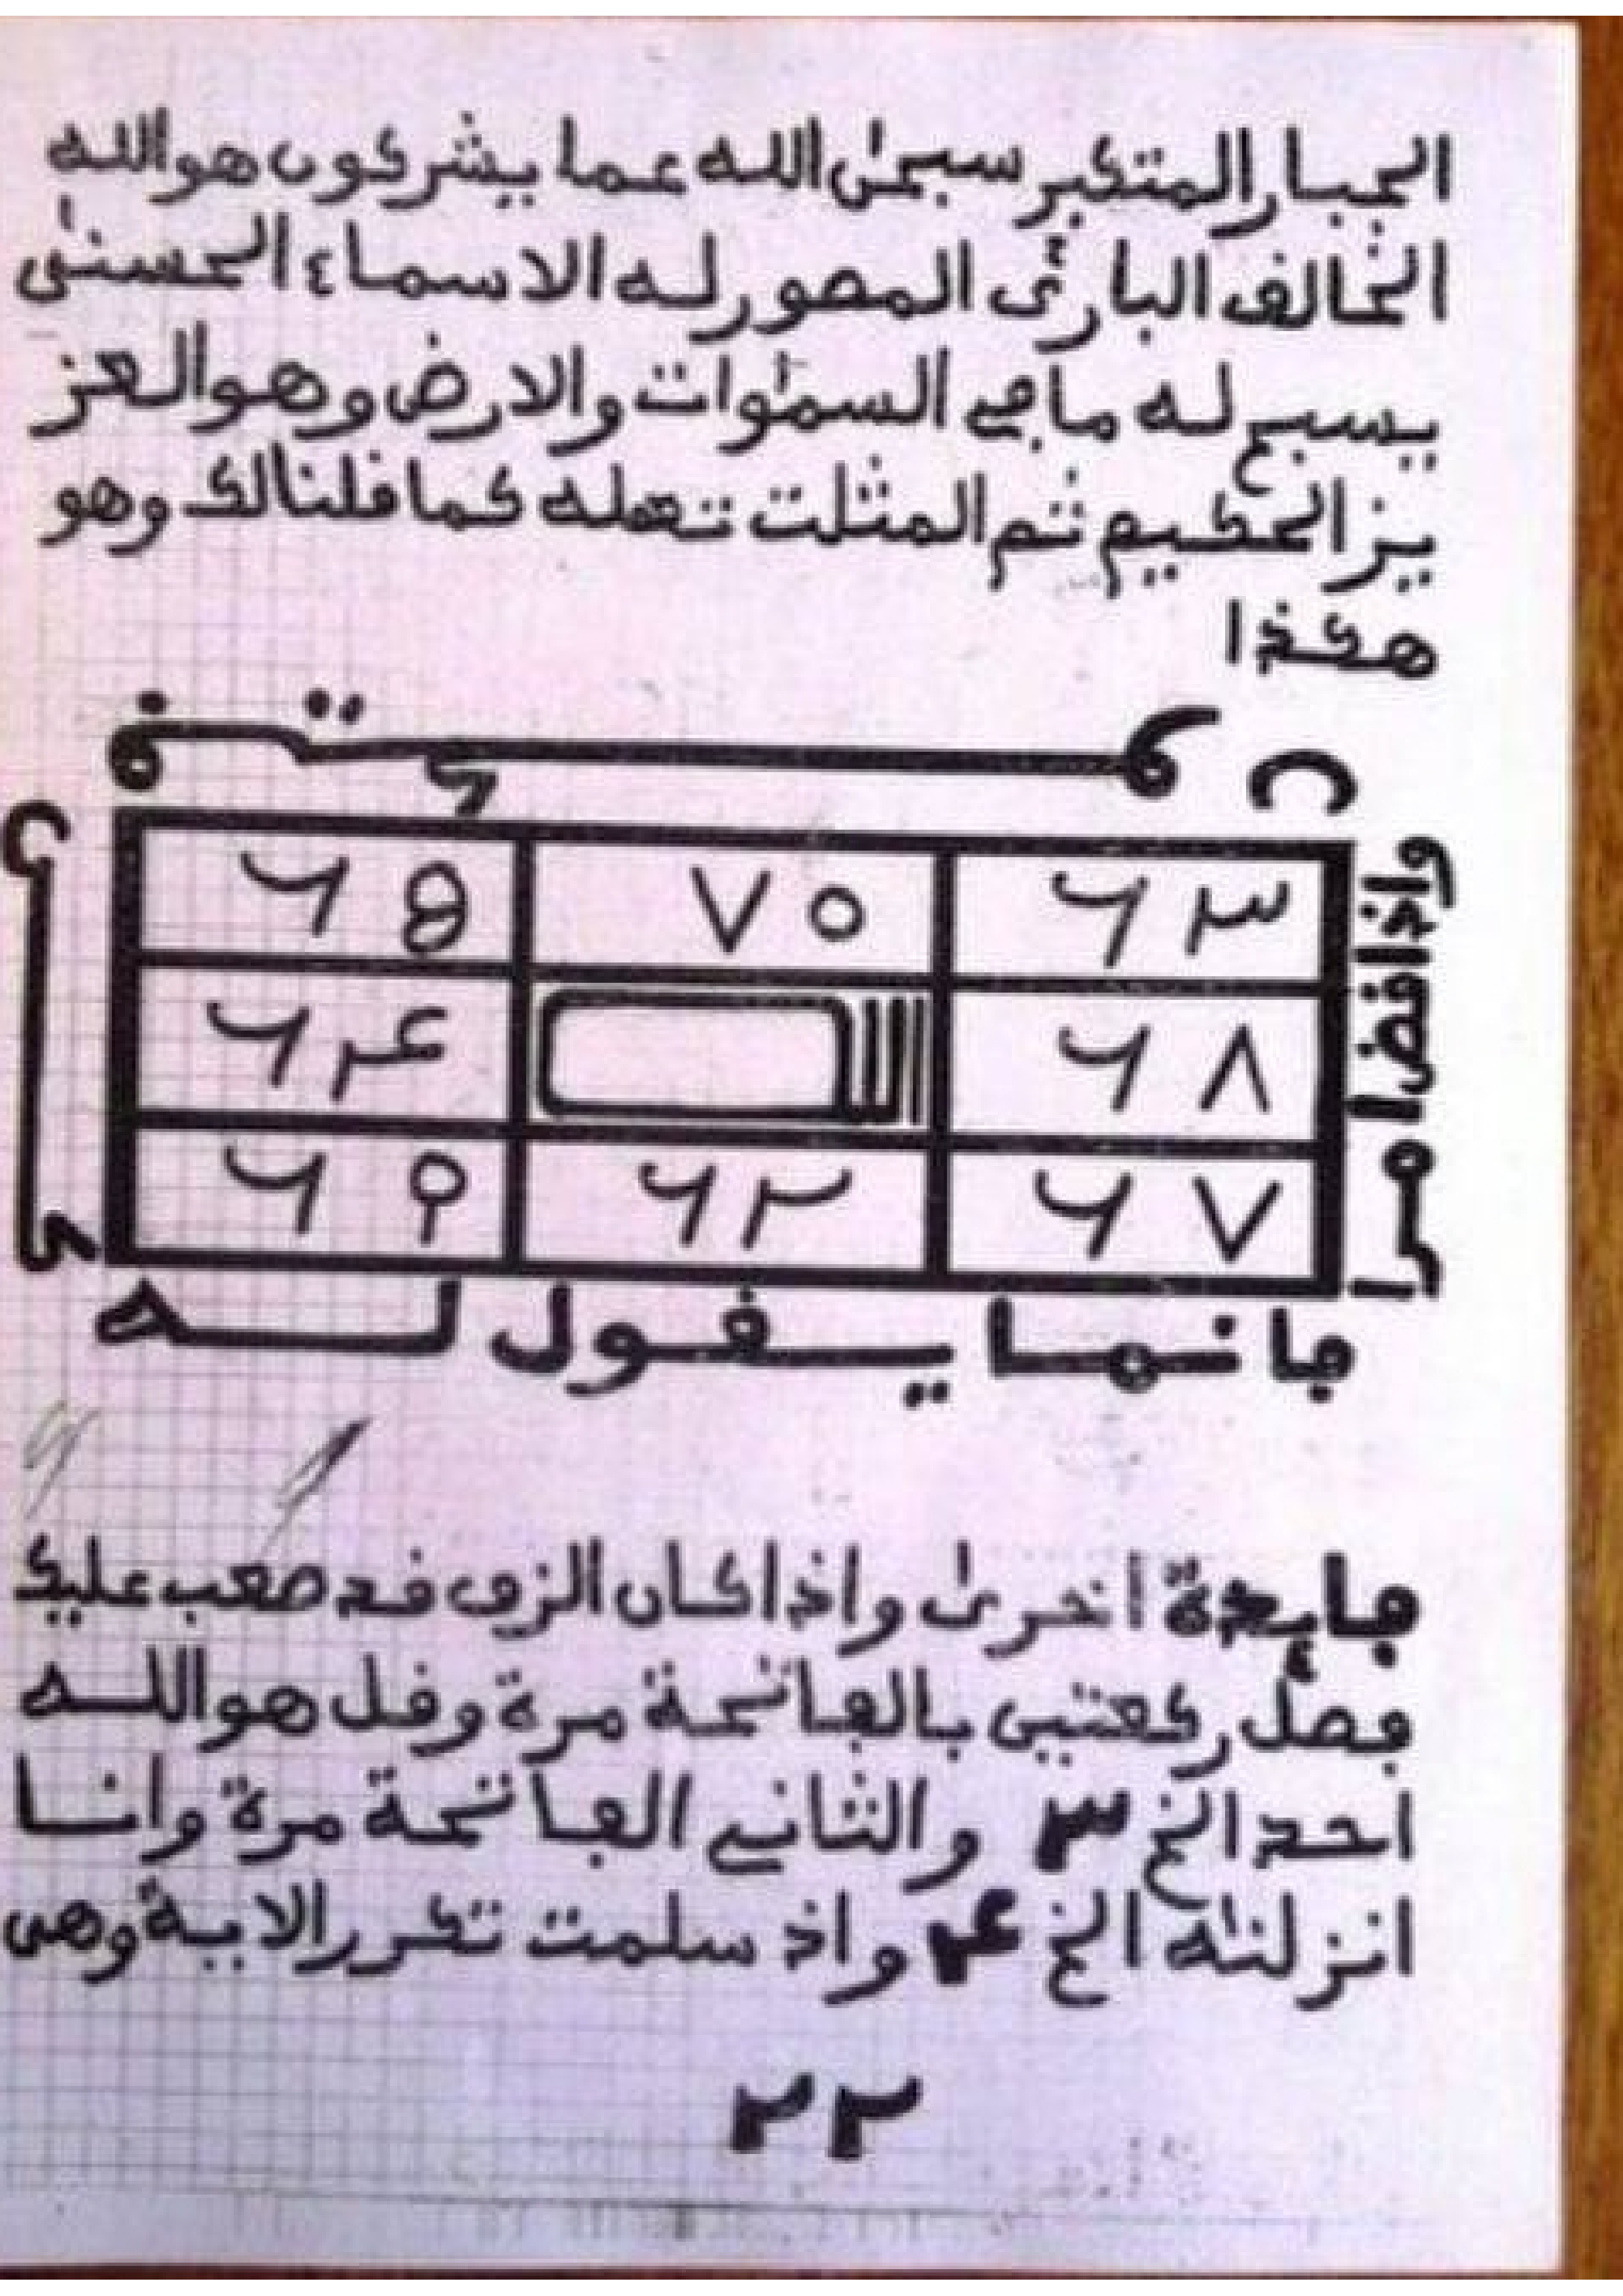 الجبار المتكبر سبحٰن الله عما يشركون هو الله
الخالق البارئ المصور له الاسماء الحسنىٰ
يسبح له ما في السمٰوات والارض وهو العز
يز الحكيم ثم المثلث تعمله كما قلنا لك وهو
هكذا
واذا قضىٰ امرا
٦٣ ٧٠ ٦٥
٦٨ ٦٤
٦٧ ٦٢ ٦٩
فانما يقول له
كن
فايدة اخرىٰ واذا كان الرزق قد صعب عليك
فصل ركعتين بالفاتحة مرة وقل هو الله
احد الخ ٣ والثاني الفاتحة مرة وانا
انزلنٰه الخ ٤ واذ سلمت تكرر الاية وهي
٢٢